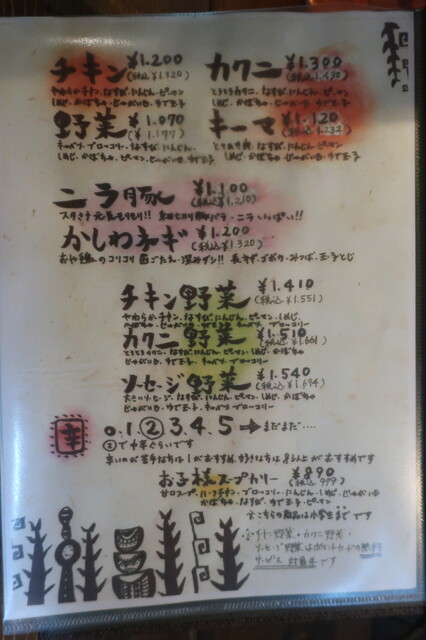 チキン ¥1.200
(税込¥1.320)
やわらかチキン、なすび、にんじん、ピーマン
しめじ、かぼちゃ、じゃがいも、うで玉子
カクニ ¥1.300
(税込¥1.430)
とろとろカクニ、なすび、にんじん、ピーマン
しめじ、かぼちゃ、じゃがいも、うで玉子
野菜 ¥1.070
(¥1.177)
キャベツ、ブロッコリー、なすび、にんじん、
しめじ、かぼちゃ、ピーマン、じゃがいも、うで玉子
キーマ ¥1.120
(税込¥1.232)
なすび、にんじん、ピーマン
しめじ、かぼちゃ、じゃがいも、うで玉子
ニラ豚 ¥1.100
(税込¥1.210)
スタミナ元気モリモリ!! 豚バラ・ニラいっぱい!!
かしわネギ ¥1.200
(税込¥1.320)
おや鶏のコリコリ歯ごたえ、深みダシ!! 長ネギ、ゴボウ、みつば、玉子とじ
チキン野菜 ¥1.410
(税込¥1.551)
やわらかチキン、なすび、にんじん、ピーマン、しめじ、
かぼちゃ、じゃがいも、うで玉子、キャベツ、ブロッコリー
カクニ野菜 ¥1.510
(税込¥1.661)
とろとろカクニ、なすび、にんじん、ピーマン、しめじ、かぼちゃ
じゃがいも、うで玉子、キャベツ、ブロッコリー
ソーセージ野菜 ¥1.540
(税込¥1.694)
大きいソーセージ、なすび、にんじん、ピーマン、しめじ、かぼちゃ
じゃがいも、うで玉子、キャベツ、ブロッコリー
辛 0.1.②3.4.5→まだまだ・・・・
②で中辛ぐらいです
辛いのが苦手な方は1がおすすめ、好きな方は3以上がおすすめです
お子様スープカリー ¥890
(税込979)
甘口スープ、ハーフチキン、ブロッコリー、にんじん、しめじ、じゃがいも
かぼちゃ、なすび、うで玉子、ピーマン
☆こちらの商品は小学生までです
☆チキン野菜・カクニ野菜・
ソーセージ野菜はポイントカードの無料
サービス対象外です